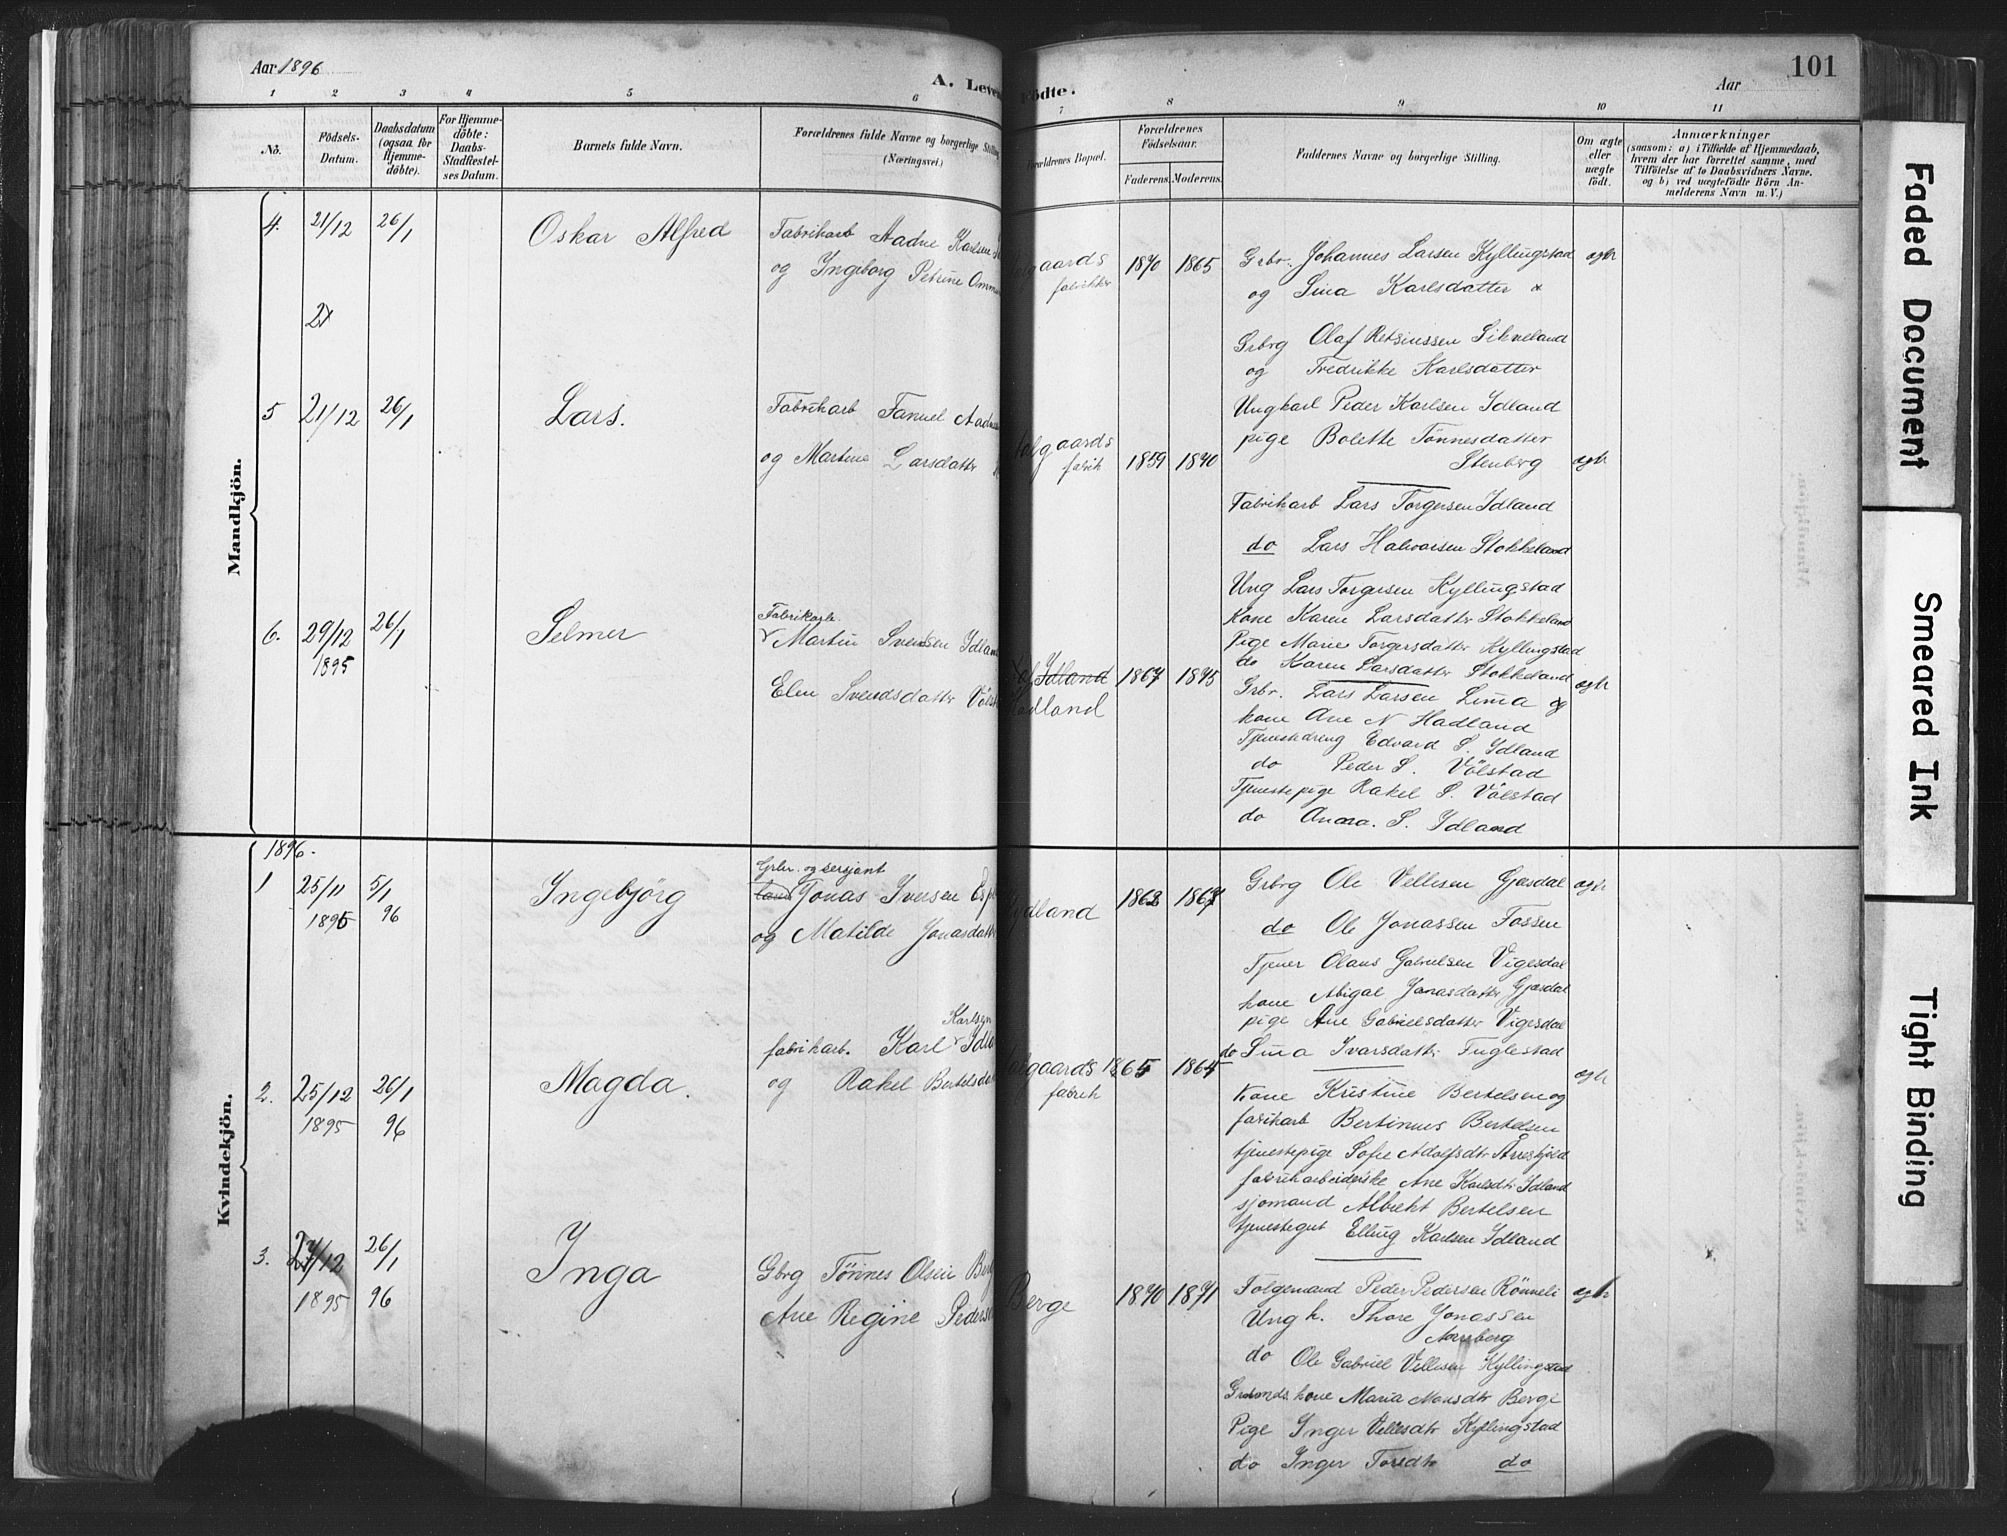 Aar 1896
A. Leven
1 2 3 4 5 6
No.
Födsels-Datum.
Daabsdatum (ogsaa for Hjemme-döbte).
For Hjemme-döbte: Daabs-Stadfæstel-ses Datum.
Barnets fulde Navn.
Forældrenes fulde Navne og borgerlige Stilling
(Næringsvei.)
Mandkjön.
4. 21/12 26/1 Oskar Alfred Fabrikarb Aadne Karlsen
og Ingeborg Petrine Omm
21
5 21/12 26/1 Lars. Fabrikarb Fanuel Aadn
og Martine Larsdatter
6. 29/12 26/1 Selmer Fabrikarb
1895 Martin Svendsen Idlan
Elen Svendsdatter Völst
Kvindekjön.
1896.
1 25/11 5/1 Ingebjörg Grbr. og sersjant
1895 96 Jonas Iversen Esp
og Matilde Jonasdatt
Karlsen
2. 25/12 26/1 Magda. fabrikarb. Karl Idla
1895 96 og Rakel Bertelsda
3. 27/12 26/1 Inga Gbrg Tönnes Olsen Ber
1895 96 Ane Regine Peders
101
Födte.
Aar
7 8 9 10 11
Forældrenes Bopæl.
Forældrenes Födselsaar.
Faderens. Moderens.
Faddernes Navne og borgerlige Stilling.
Om ægte eller uægte födt.
Anmærkninger
(saasom: a) i Tilfælde af Hjemmedaab,
hvem der har forrettet samme, med
Tilföielse af to Daabsvidners Navne.
og b) ved uægtefödte Börn An-
melderens Navn m. V.)
aalgaards 1870 1865 Grbr. Johannes Larsen Kyllingstad ægte
fabrikker og Sina Karlsdatter
Grbrg Olaf Retsiussen Sikveland
og Fredrikke Karlsdatter
Ungkarl Peder Karlsen Idland
aalgaards pige Bolette Tönnesdatter
fabrik 1859 1870 Stenberg ægte
Fabrikarb Lars Torgersen Idland
do Lars Halvorsen Stokkeland
Ung Lars Torgersen Kyllingstad
Kone Karen Larsdatter Stokkeland
Pige Marie Torgersdatter Kyllingstad
Idland 1867 1875 do Karen Larsdatter Stokkeland ægte
Hadland Grbr. Lars Larsen Lima og
kone Ane N Hadland
Tjenestedreng Edvard S. Idland
do Peder S. Völstad
Tjenestepige Rakel S. Völstad
do Anna. S. Idland
1862 1867 Grbrg Ole Vellesen Gjesdal ægte
do Ole Jonassen Fossen
Tjener Olaus Gabrielsen Vigesdal
kone Abigal Jonasdatter Gjesdal
pige Ane Gabrielsdatter Vigesdal
do Sina Ivarsdatter Fuglestad
aalgaards 1865 1864 ægte
fabrik Kone Kristine Bertelsen og
fabrikarb Bertinus Bertelsen
tjenestepige Sofie Adolfsdtr Årrestjeld
fabrikarbeiderske Ane Karlsdtr Idland
sjomand Albrekt Bertelsen
tjenestegut Elling Karlsen Idland
Berge 1870 1871 Folgemand Peder Pedersen Rönneli ægte
Ungk. Thore Jonassen
do Ole Gabriel Vellesen Kyllingstad
Grdmds kone Maria Monsdtr Berge
Pige Inger Vellesdtr Kyllingstad
do Inger Toresdtr do
Faded Document
Smeared Ink
Tight Binding